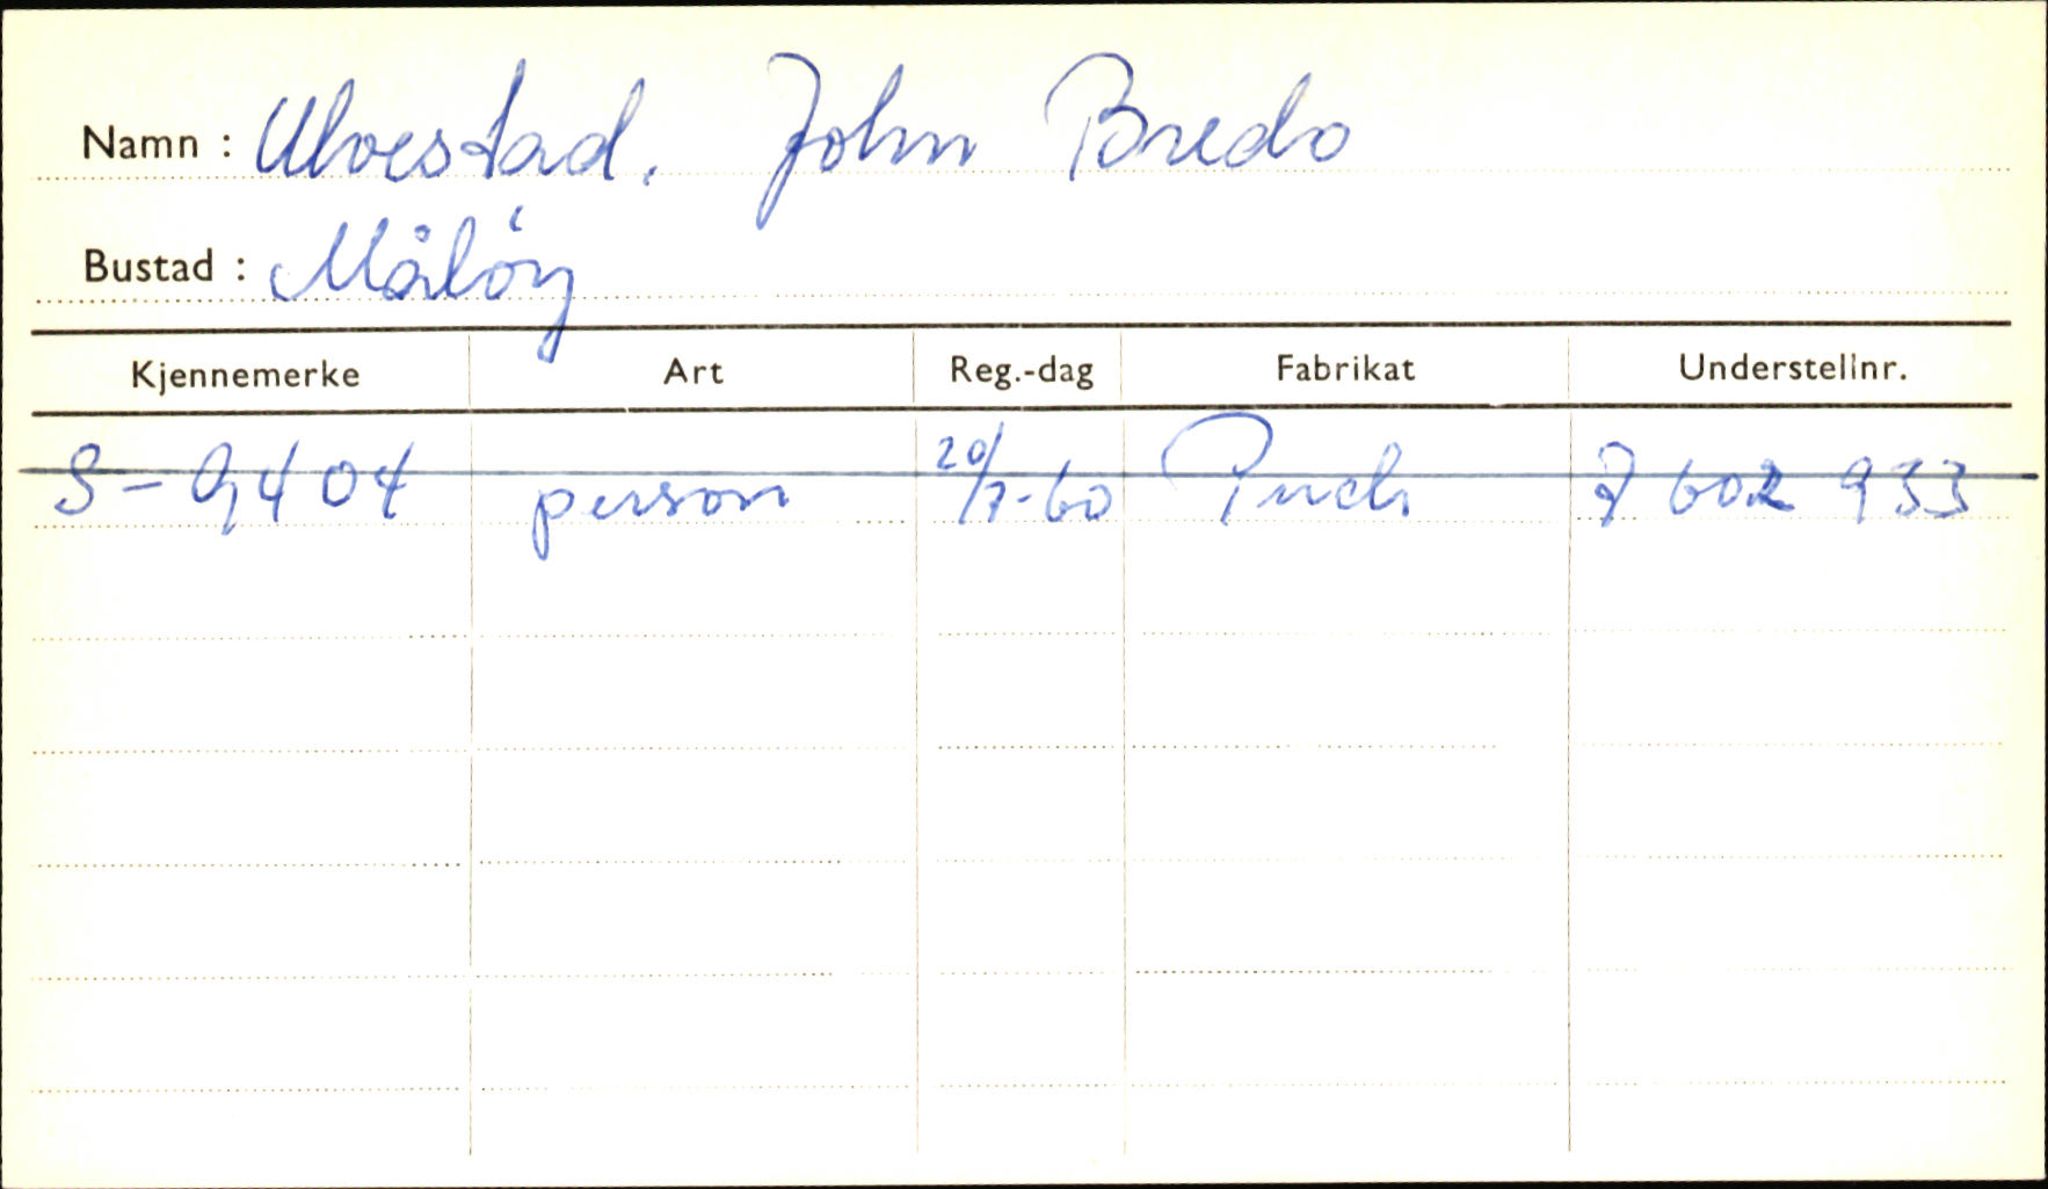 Namn : Ulvestad. John Bredo
Bustad : Måløy
Kjennemerke Art Reg.-dag Fabrikat Understellnr.
S-9404 person 20/7-60 Puch 7602933